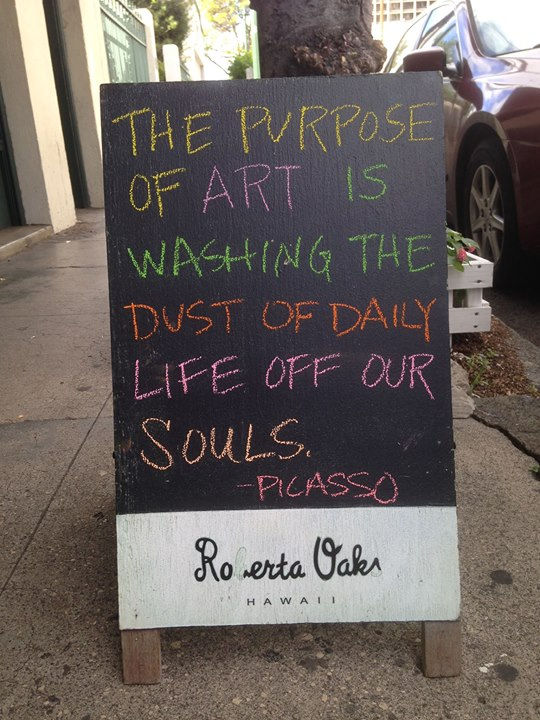 THE PURPOSE
OF ART IS
WASHING THE
DUST OF DAILY
LIFE OFF OUR
SOULS.
-PICASSO
Roberta Oaks
HAWAII